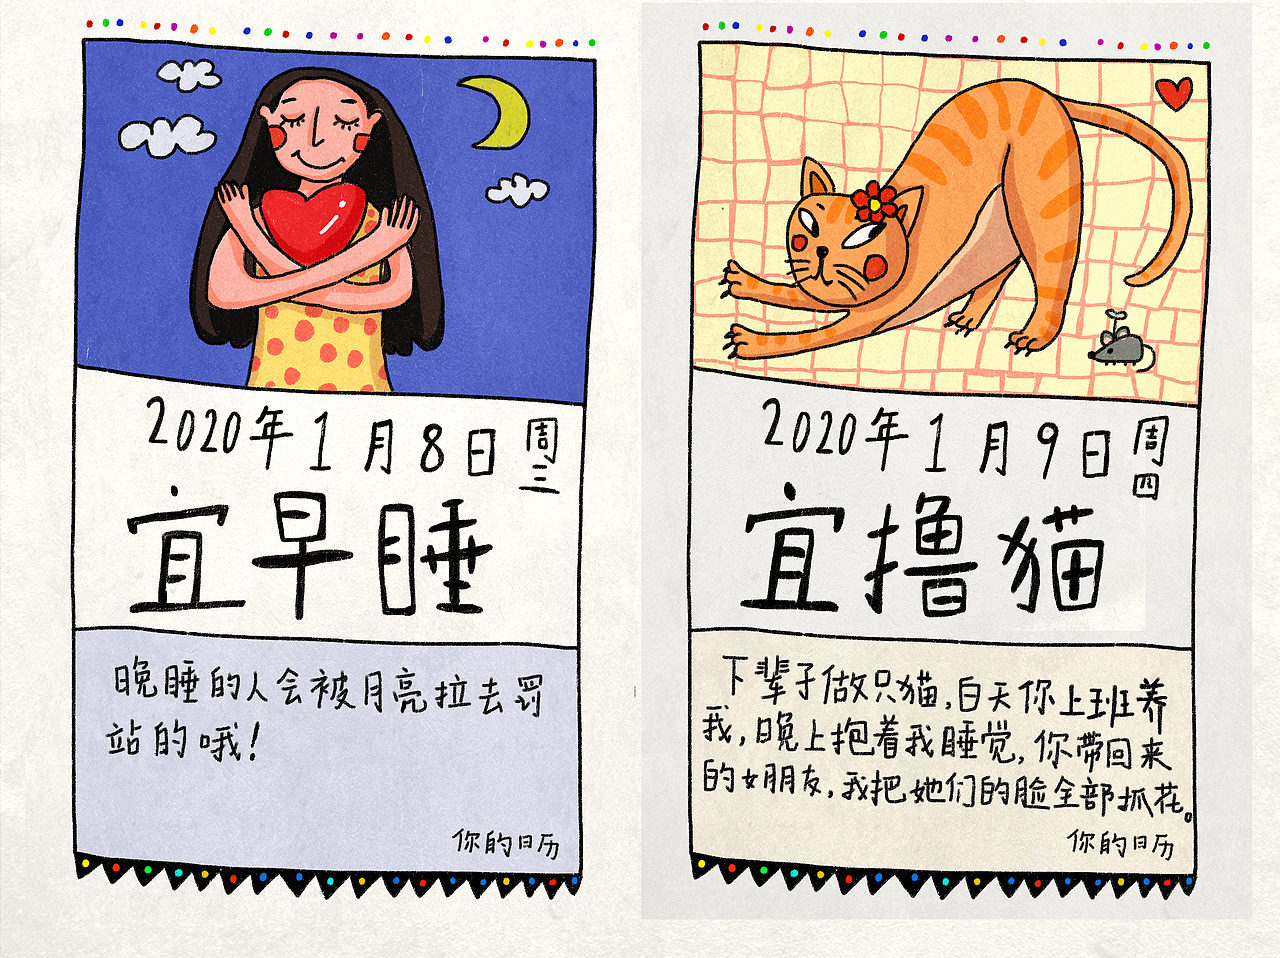 2020年1月8日 周三
宜早睡
晚睡的人会被月亮拉去罚
站的哦!
你的日历
2020年1月9日 周四
宜撸猫
下辈子做只猫,白天你上班养
我,晚上抱着我睡觉,你带回来
的女朋友,我把她们的脸全部抓花。
你的日历